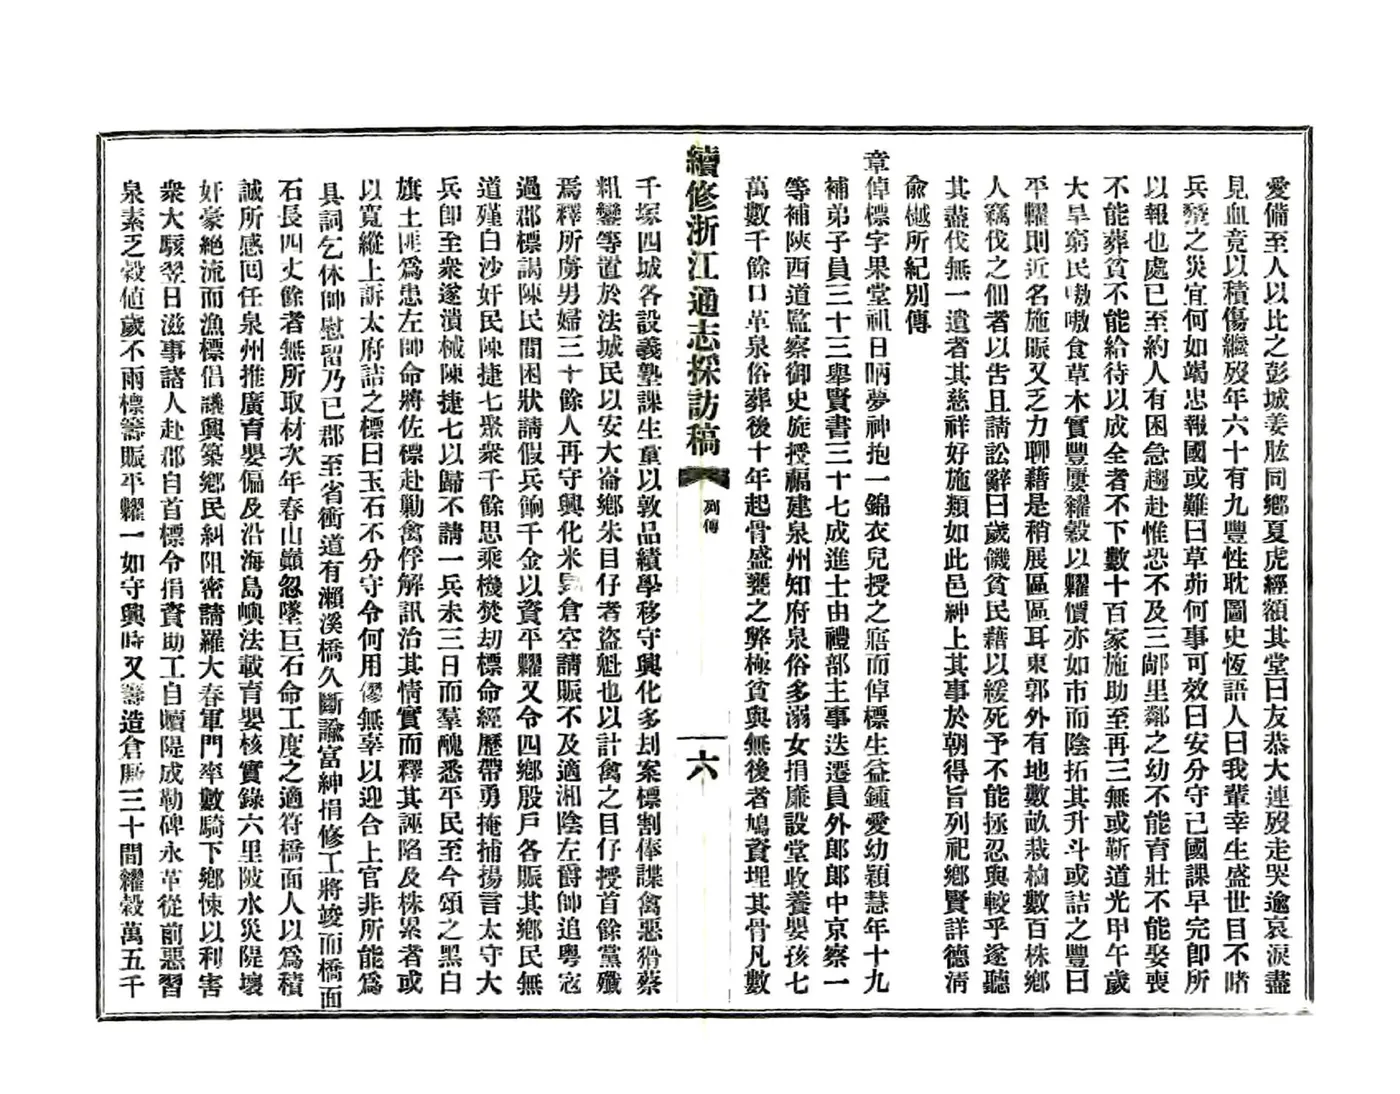 愛備至人以比之彭城姜肱同鄉夏虎經額其堂曰友恭大連歿走哭逾哀淚盡
見血竟以積傷繼歿年六十有九豐性耽圖史恆語人曰我輩幸生盛世目不睹
兵燹之災宜何如竭忠報國或難曰草茆何事可效曰安分守己國課早完即所
以報也處己至約人有困急趨赴惟恐不及三鄰里鄰之幼不能育壯不能娶喪
不能葬貧不能給待以成全者不下數十百家施助至再三無或靳道光甲午歲
大旱窮民嗷嗷食草木實豐屢糴穀以糶價亦如市而陰拓其升斗或詰之豐曰
平糶則近名施賑又乏力聊藉是稍展區區耳東郭外有地數畝栽柏數百株鄉
人竊伐之佃者以告且請訟辭曰歲饑貧民藉以緩死予不能拯忍與較乎遂聽
其盡伐無一遺者其慈祥好施類如此邑紳上其事於朝得旨列祀鄉賢詳德淸
俞樾所紀別傳
章倬標字果堂祖日昞夢神抱一錦衣兒授之寤而倬標生益鍾愛幼穎慧年十九
補弟子員三十三舉賢書三十七成進士由禮部主事迭遷員外郎郎中京察一
等補陝西道監察御史旋授福建泉州知府泉俗多溺女捐廉設堂收養嬰孩七
萬數千餘口革泉俗葬後十年起骨盛甕之弊極貧與無後者鳩資埋其骨凡數
續修浙江通志採訪稿
列傳
六
千塚四城各設義塾課生童以敦品績學移守興化多刦案標割俸諜禽惡猾蔡
粗彎等置於法城民以安大崙鄉朱目仔者盜魁也以計禽之目仔授首餘黨殲
焉釋所虜男婦三十餘人再守興化米倉空請賑不及適湘陰左爵帥追粵寇
過郡標謁陳民間困狀請假兵餉千金以資平糶又令四鄉殷戶各賑其鄉民無
道殣白沙奸民陳捷七聚衆千餘思乘機焚劫標命經歷帶勇掩捕揚言太守大
兵卽至衆遂潰械陳捷七以歸不請一兵未三日而羣醜悉平民至今頌之黑白
旗土匪爲患左帥命將佐標赴勦禽俘解訊治其情實而釋其誣陷及株累者或
以寬縱上訴太府詰之標曰玉石不分守令何用僇無辜以迎合上官非所能爲
具詞乞休帥慰留乃已郡至省衝道有瀨溪橋久斷諭富紳捐修工將竣而橋面
石長四丈餘者無所取材次年春山巓忽墜巨石命工度之適符橋面人以爲積
誠所感囘任泉州推廣育嬰偏及沿海島嶼法載育嬰核實錄六里陂水災隄壞
奸豪絕流而漁標倡議興築鄉民糾阻密請羅大春軍門率數騎下鄉悚以利害
衆大駭翌日滋事諸人赴郡自首標令捐資助工自贖隄成勒碑永革從前惡習
泉素乏穀値歲不雨標籌賑平糶一如守興時又籌造倉廒三十間糴穀萬五千